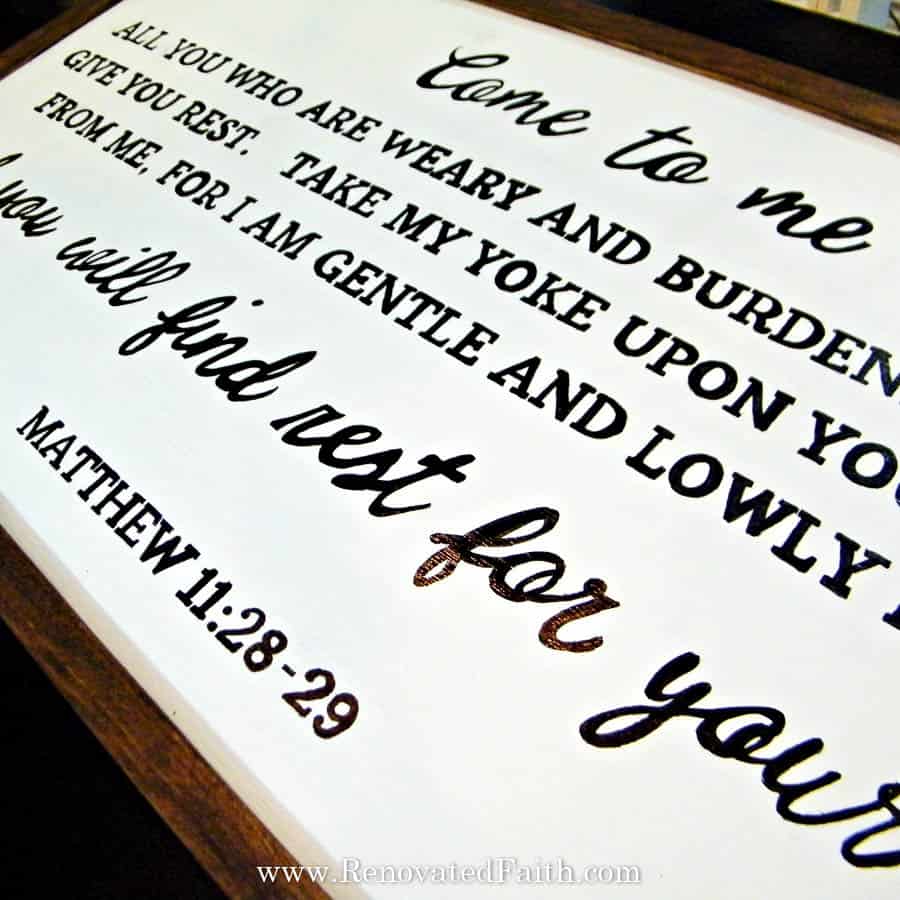 Come to me
ALL YOU WHO ARE WEARY AND BURDEN
GIVE YOU REST. TAKE MY YOKE UPON YOU
FROM ME, FOR I AM GENTLE AND LOWLY
you will find rest for your
MATTHEW 11:28-29
www.RenovatedFaith.com